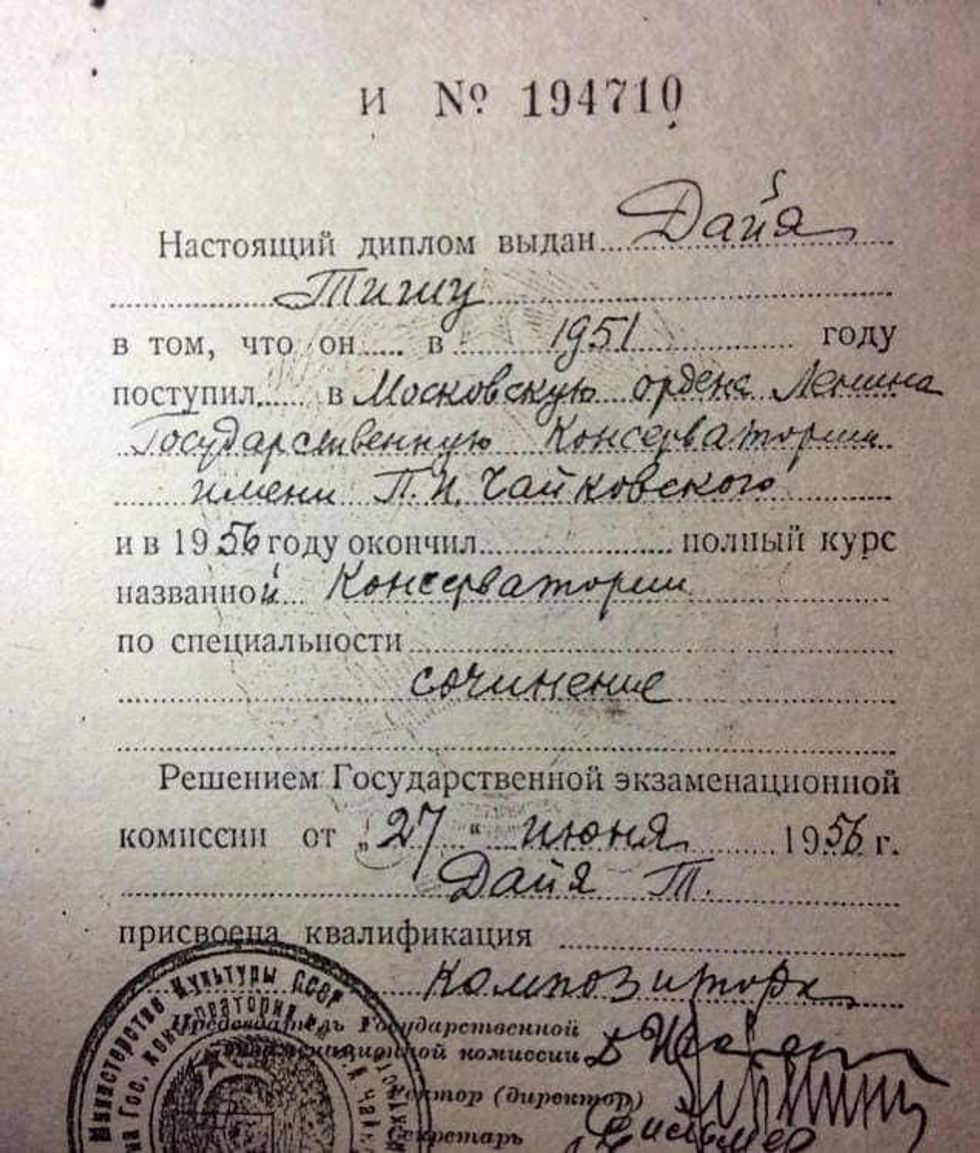 И № 194710
Настоящий диплом выдан Дайя
Тишу
в том, что он в 1951 году
поступил в Московскую ордена Ленина
Государственную Консерваторию
имени П. И. Чайковского
и в 1956 году окончил полный курс
названной Консерватории
по специальности
сочинение
Решением Государственной экзаменационной
комиссии от „27“ июня 1956 г.
Дайя Т.
присвоена квалификация
Композитора
Председатель Государственной
экзаменационной комиссии
Ректор (директор)
Секретарь
Министерство Культуры СССР